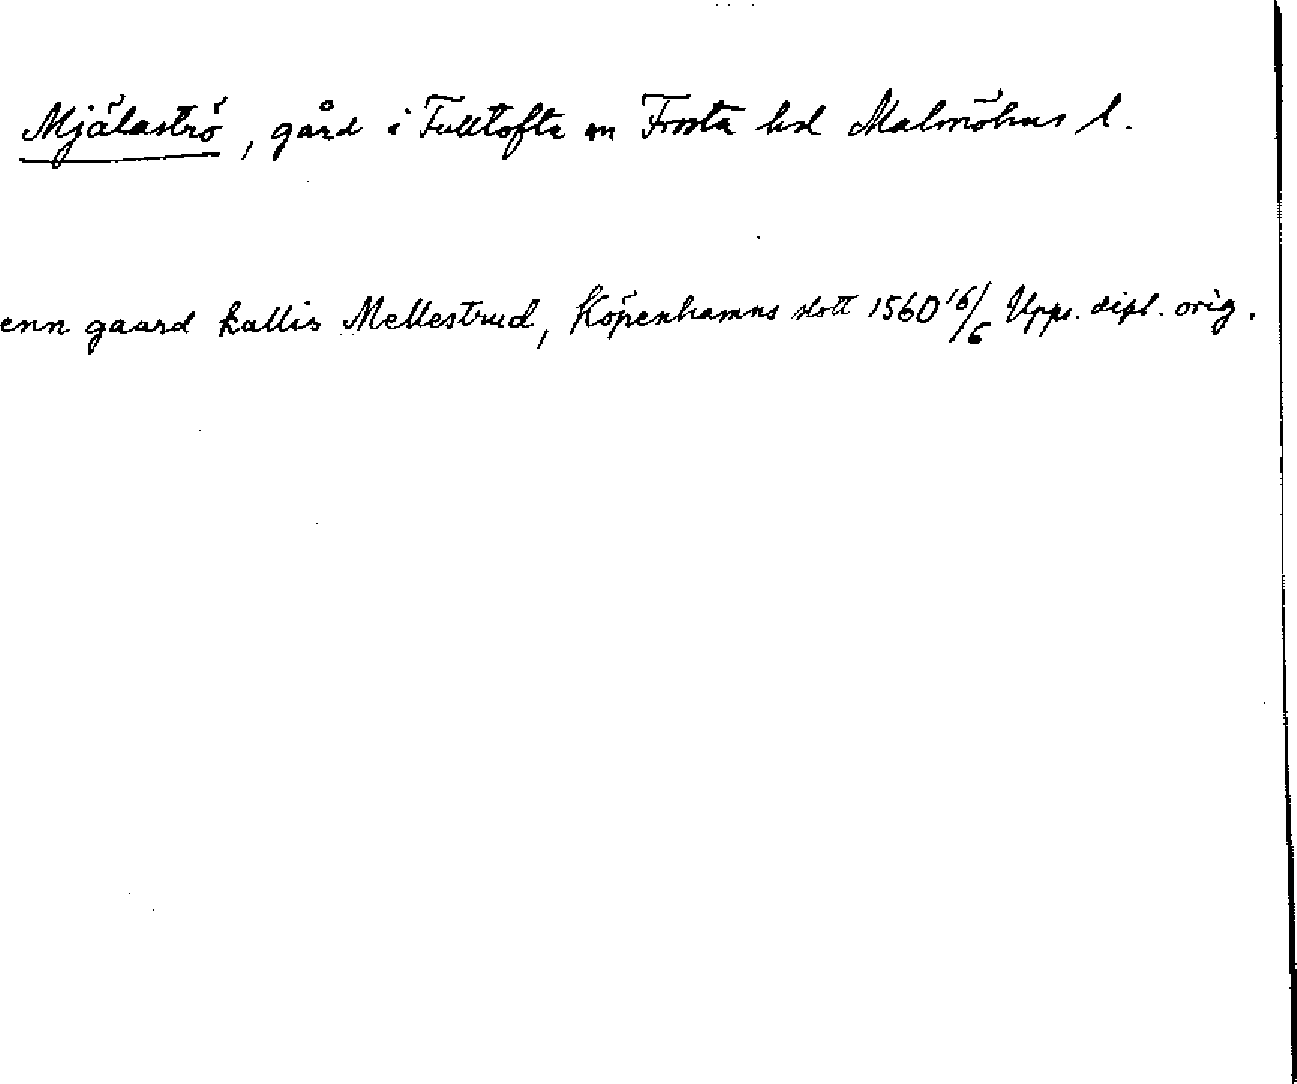 Mjälaströ, gård i Fulltofta sn Frosta hd Malmöhus l.
enn gaard kallis Mellestrud, Köpenhamns slott 1560 16/6 Upps. dipl. orig.